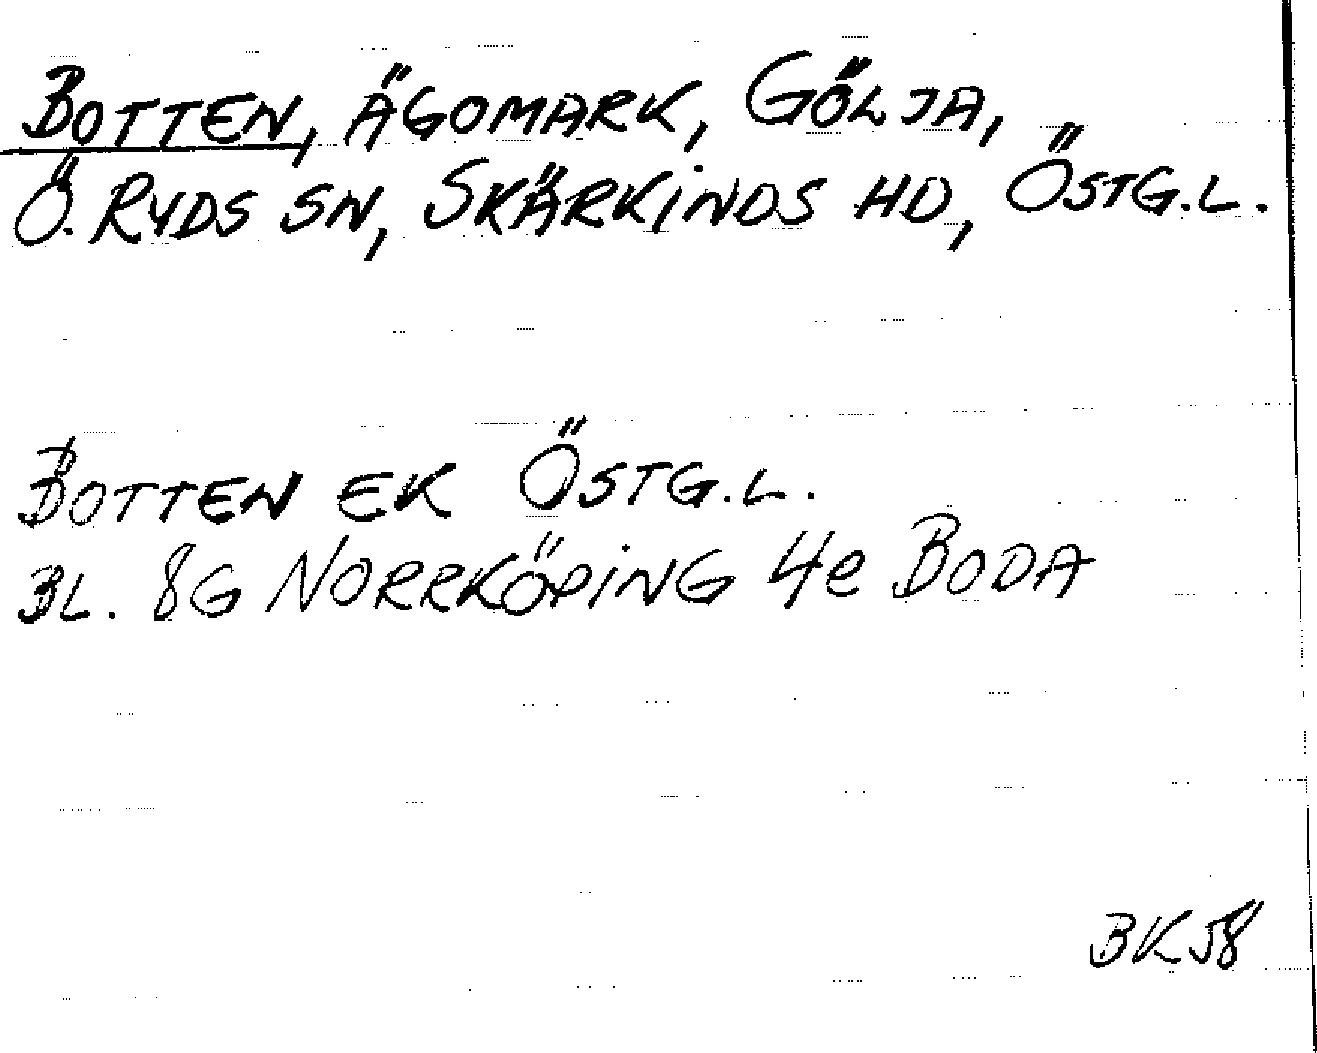 BOTTEN, ÄGOMARK, GÖLJA,
Ö. RYDS SN, SKÄRKINDS HD, ÖSTG.L.
BOTTEN EK ÖSTG.L.
BL. 8G NORRKÖPING 4e BODA
BK58